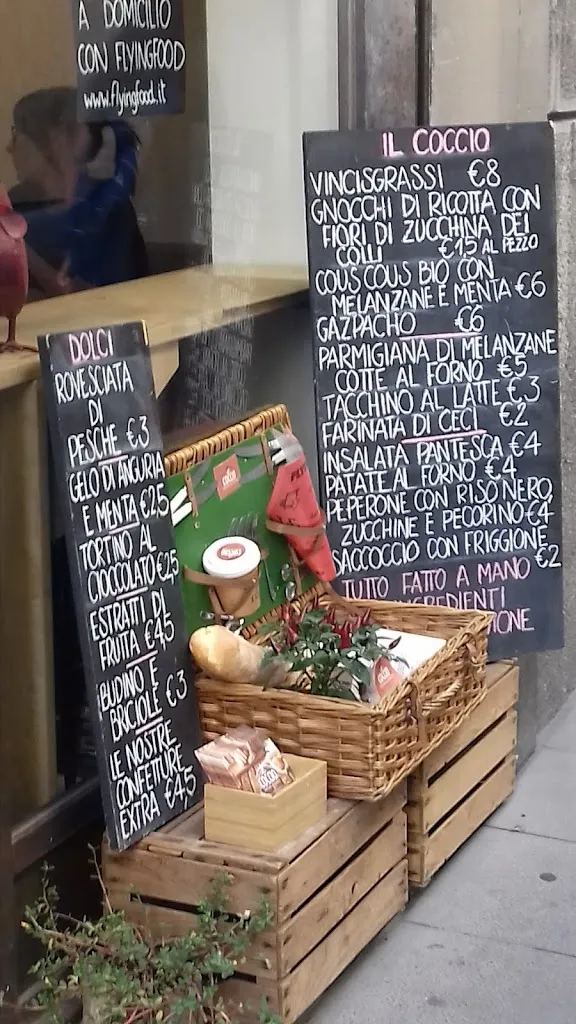 A DOMICILIO
CON FLYINGFOOD
www.flyingfood.it
IL COCCIO
VINCISGRASSI €8
GNOCCHI DI RICOTTA CON
FIORI DI ZUCCHINA DEI
COLLI €15 AL PEZZO
COUS COUS BIO CON
MELANZANE E MENTA €6
GAZPACHO €6
PARMIGIANA DI MELANZANE
COTTE AL FORNO €5
TACCHINO AL LATTE €3
FARINATA DI CECI €2
INSALATA PANTESCA €4
PATATE AL FORNO €4
PEPERONE CON RISO NERO,
ZUCCHINE E PECORINO €4
SACCOCCIO CON FRIGGIONE
€2
TUTTO FATTO A MANO
DOLCI
ROVESCIATA
DI
PESCHE €3
GELO DI ANGURIA
E MENTA €2,5
TORTINO AL
CIOCCOLATO €2,5
ESTRATTI DI
FRUTTA €4,5
BUDINO E
BRICIOLE €3
LE NOSTRE
CONFETTURE
EXTRA €4,5